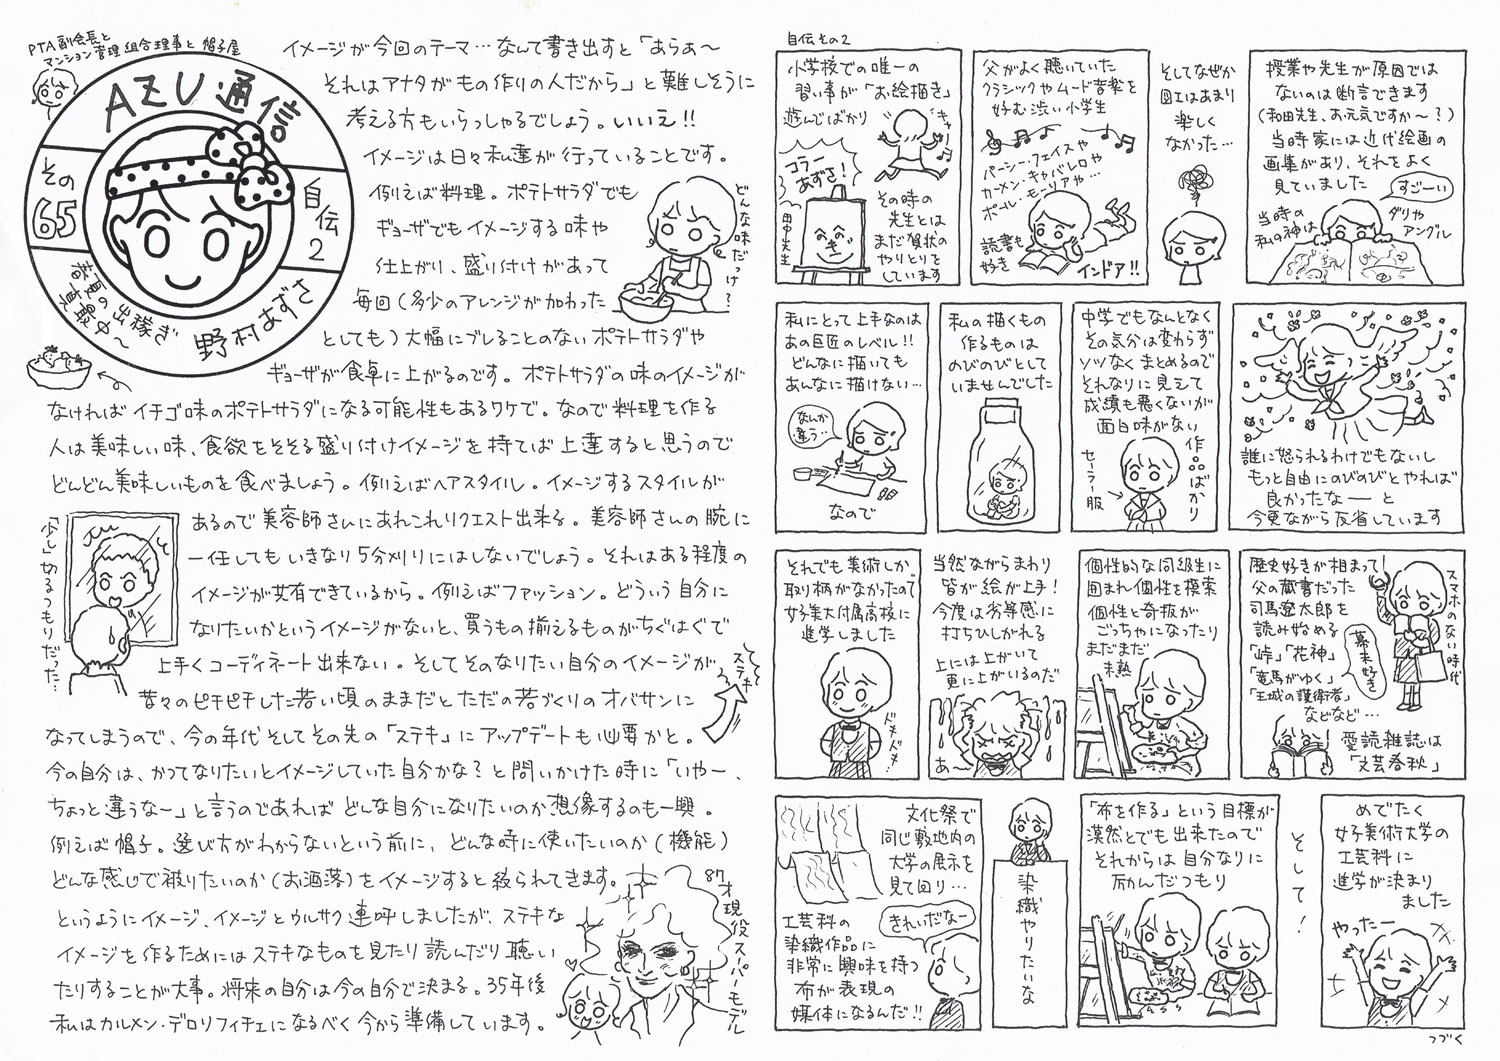 PTA副会長と
マンション管理組合理事と帽子屋
AZU通信
その
65
自伝
2
若夏の出稼ぎ
真最中〜
野村あずさ
イメージが今回のテーマ…なんて書き出すと「あらぁ〜
それはアナタがもの作りの人だから」と難しそうに
考える方もいらっしゃるでしょう。いいえ!!
イメージは日々私達が行っていることです。
例えば料理。ポテトサラダでも
ギョーザでもイメージする味や
仕上がり、盛り付けがあって
毎回(多少のアレンジが加わった
としても)大幅にブレることのないポテトサラダや
ギョーザが食卓に上がるのです。ポテトサラダの味のイメージが
なければイチゴ味のポテトサラダになる可能性もあるワケで。なので料理を作る
人は美味しい味、食欲をそそる盛り付けイメージを持てば上達すると思うので
どんどん美味しいものを食べましょう。例えばヘアスタイル。イメージするスタイルが
あるので美容師さんにあれこれリクエスト出来る。美容師さんの腕に
一任してもいきなり5分刈りにはしないでしょう。それはある程度の
イメージが共有できているから。例えばファッション。どういう自分に
なりたいかというイメージがないと、買うもの揃えるものがちぐはぐで
上手くコーディネート出来ない。そしてそのなりたい自分のイメージが
昔々のピチピチした若い頃のままだとただの若づくりのオバサンに
なってしまうので、今の年代そしてその先の「ステキ」にアップデートも必要かと。
今の自分は、かつてなりたいとイメージしていた自分かな?と問いかけた時に「いやー、
ちょっと違うな〜」と言うのであればどんな自分になりたいのか想像するのも一興。
例えば帽子。選び方がわからないという前に、どんな時に使いたいのか(機能)
どんな感じで被りたいのか(お洒落)をイメージすると絞られてきます。
というようにイメージ、イメージとウルサク連呼しましたが、ステキな
イメージを作るためにはステキなものを見たり読んだり聴い
たりすることが大事。将来の自分は今の自分で決まる。35年後
私はカルメン・デロリフィチェになるべく今から準備しています。
どんな味だっけ?
「少し」切るつもりだった…
ステキ
87才現役スーパーモデル
自伝その2
小学校での唯一の
習い事が「お絵描き」
遊んでばかり
キャー
コラー
あずさ!
田中先生
その時の
先生とは
まだ賀状の
やりとりを
しています
父がよく聴いていた
クラシックやムード音楽を
好む渋い小学生
パーシー・フェイスや
カーメン・キャバレロや
ポール・モーリアや…
読書も
好き
インドア!!
そしてなぜか
図工はあまり
楽しく
なかった…
授業や先生が原因では
ないのは断言できます
(和田先生、お元気ですか〜?)
当時家には近代絵画の
画集があり、それをよく
見ていました
すごーい
当時の
私の神は
ダリや
アングル
私にとって上手なのは
あの巨匠のレベル!!
どんなに描いても
あんなに描けない…
なんか
違う…
なので
私の描くもの
作るものは
のびのびとして
いませんでした
中学でもなんとなく
その気分は変わらず
ソツなくまとめるので
それなりに見えて
成績も悪くないが
面白味がない
作品ばかり
セーラー服
誰に怒られるわけでもないし
もっと自由にのびのびとやれば
良かったなーと
今更ながら反省しています
それでも美術しか
取り柄がなかったので
女子美大付属高校に
進学しました
ドキドキ…
当然ながらまわり
皆が絵が上手!
今度は劣等感に
打ちひしがれる
上には上がいて
更に上がいるのだ
あ〜
個性的な同級生に
囲まれ個性を模索
個性と奇抜が
ごっちゃになったり
まだまだ
未熟
歴史好きが相まって
父の蔵書だった
司馬遼太郎を
読み始める
「峠」「花神」
「竜馬がゆく」
「王城の護衛者」
などなど…
幕末好き
スマホのない時代
愛読雑誌は
「文芸春秋」
文化祭で
同じ敷地内の
大学の展示を
見て回り…
工芸科の
染織作品に
非常に興味を持つ
布が表現の
媒体になるんだ!!
きれいだなー
染織やりたいな
「布を作る」という目標が
漠然とでも出来たので
それからは自分なりに
励んだつもり
そして!
めでたく
女子美術大学の
工芸科に
進学が決まり
ました
やったー
つづく